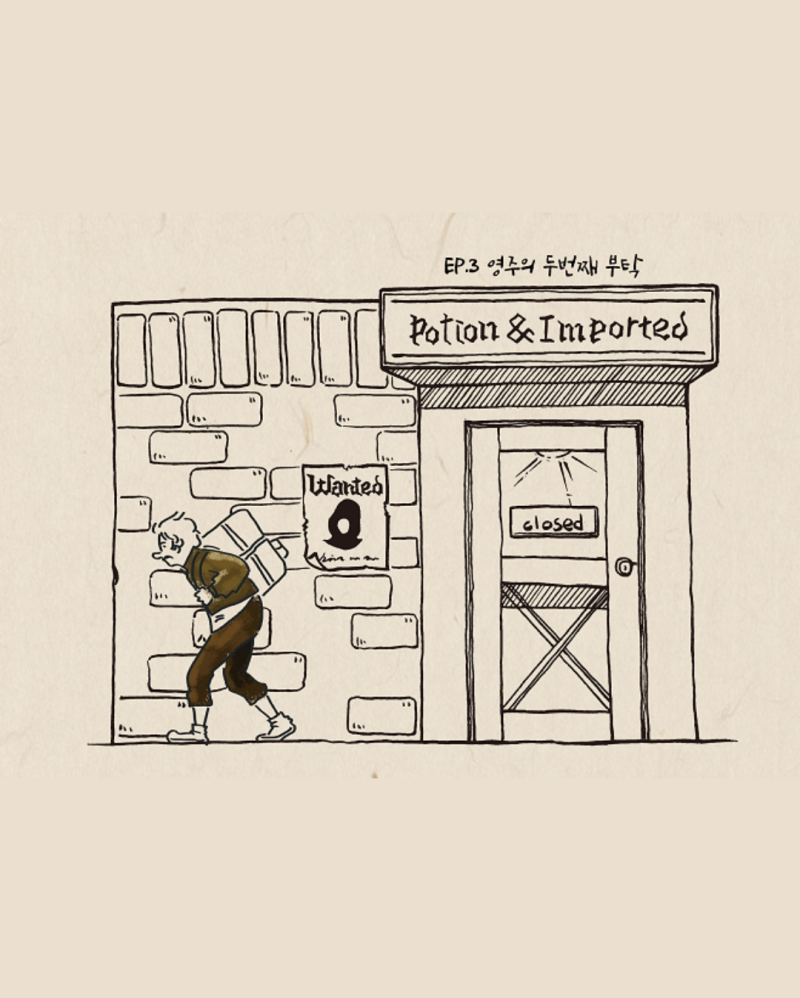 EP.3 영주의 두번째 부탁
Potion & Imported
Wanted
closed